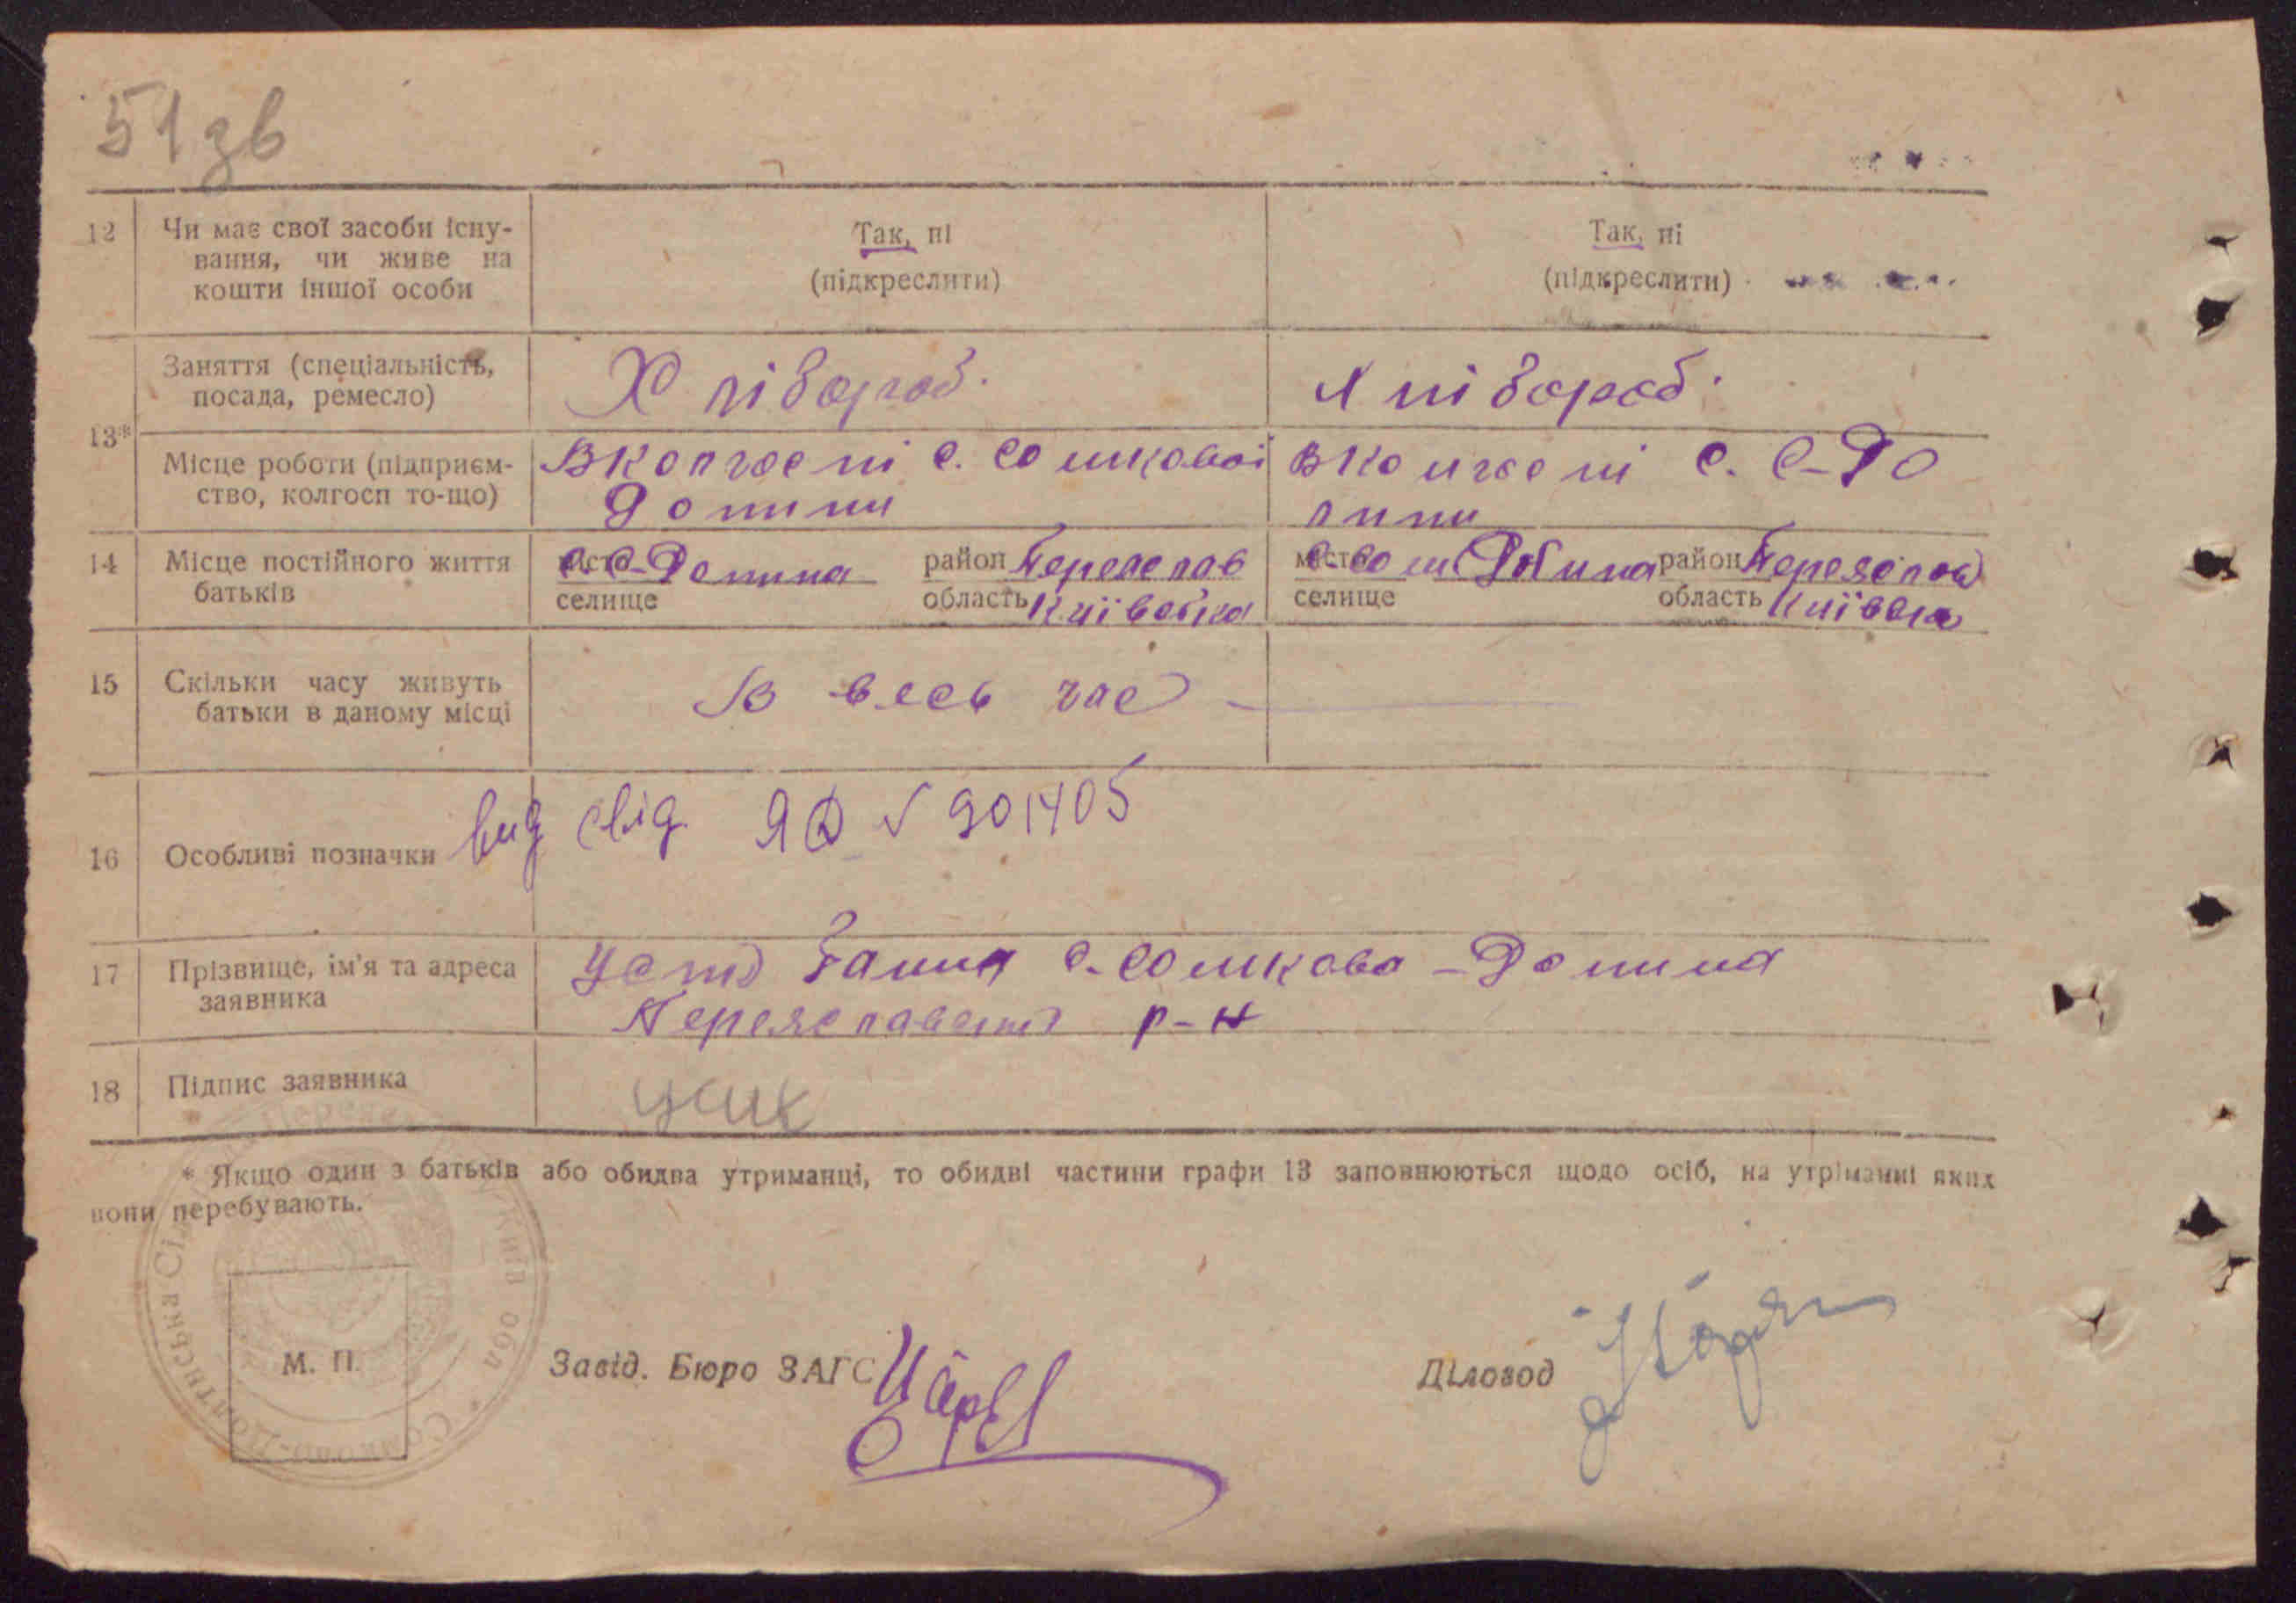 51зв
12 Чи має свої засоби існу-
вання, чи живе на
кошти іншої особи
Так, ні
(підкреслити)
Так, ні
(підкреслити)
13*
Заняття (спеціальність,
посада, ремесло)
Хлібороб.
Хлібороб.
Місце роботи (підприєм-
ство, колгосп то-що)
В колгоспі с. Сомкової
Долини
В колгоспі с. С-До
лини
14 Місце постійного життя
батьків
місто с. С-Долина район Переяслав
селище область Київська
місто с. Сом Долина район Переяслав
селище область Київська
15 Скільки часу живуть
батьки в даному місці
В весь час
16 Особливі позначки
вид свід. ЯФ № 901405
17 Прізвище, ім'я та адреса
заявника
Ганна с. Сомкова-Долина
Переяславський р-н
18 Підпис заявника
* Якщо один з батьків або обидва утриманці, то обидві частини графи 13 заповнюються щодо осіб, на утріманні яких
вони перебувають.
М. П.
Завід. Бюро ЗАГС
Діловод